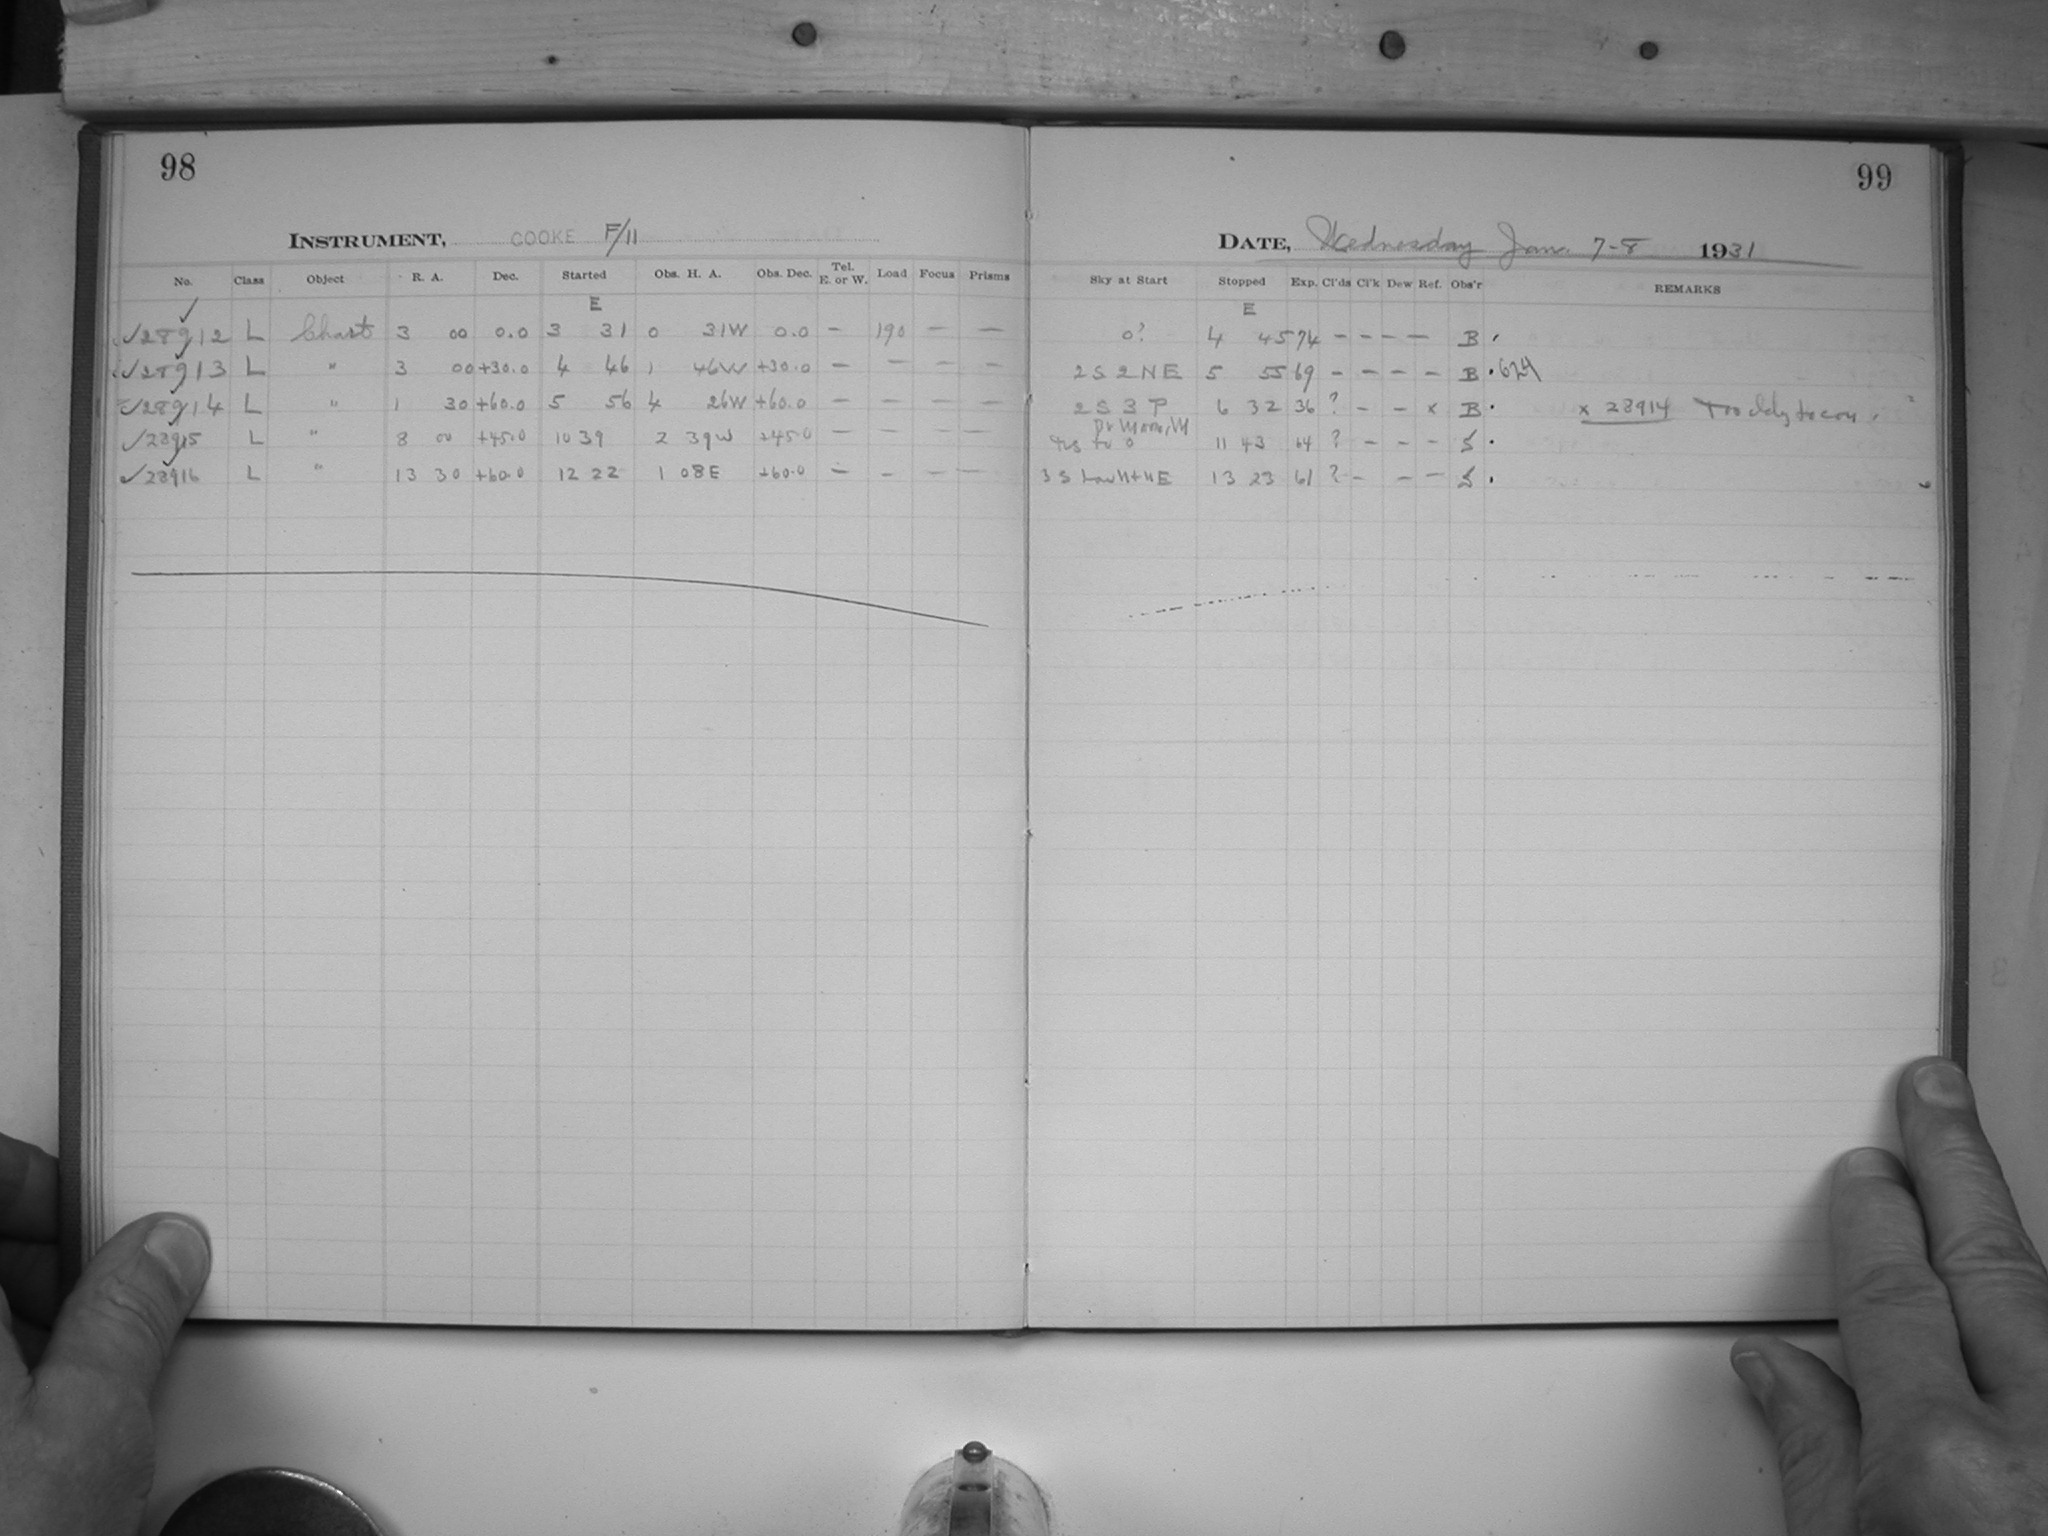 98
99
INSTRUMENT, COOKE F/11
DATE, Wednesday Jan. 7-8 1931
No. Class Object R. A. Dec. Started Obs. H. A. Obs. Dec. Tel. E. or W. Load Focus Prisms
Sky at Start Stopped Exp. Cl'ds Cl'k Dew Ref. Obs'r REMARKS
E
E
✓28912 L Chart 3 00 0.0 3 31 0 31W 0.0 — 190 — —
0? 4 45 74 — — — — B
✓28913 L " 3 00 +30.0 4 46 1 46W +30.0 — — — —
2 S 2 NE 5 55 69 — — — — B
✓28914 L " 1 30 +60.0 5 56 4 26W +60.0 — — — —
2 S 3 P 6 32 36 ? — — x B x 28914
✓28915 L " 8 00 +45.0 10 39 2 39W +45.0 — — — —
Br Moon, M
to 0 11 43 64 ? — — — S
✓28916 L " 13 30 +60.0 12 22 1 08E +60.0 — — — —
3 S Low N+NE 13 23 61 ? — — — S